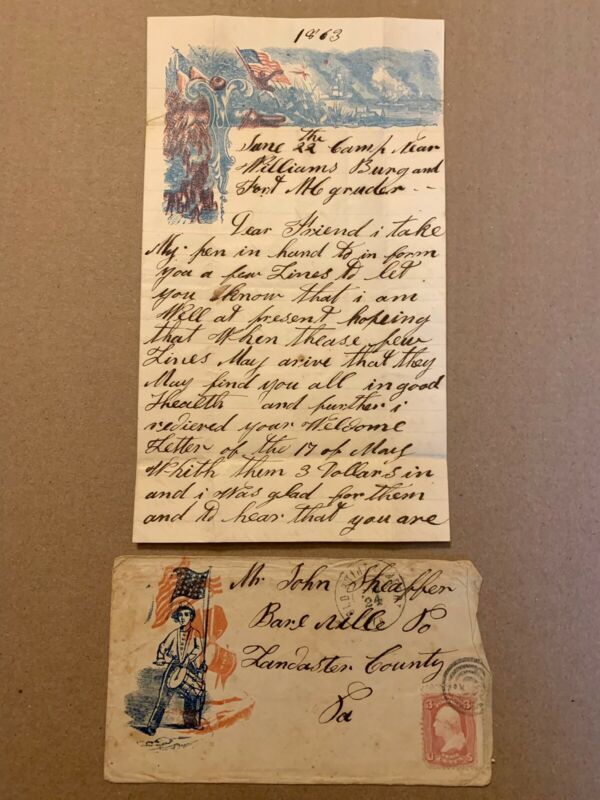 1863
June the 22 Camp Near
Williams Burg and
Fort McGruder --
Dear Friend i take
My pen in hand to in form
you a few Lines to let
you know that i am
Well at present hopeing
that When thease few
Lines May arive that they
May find you all in good
Health and further i
recieved your Wellcome
Letter of the 17 of May
Whith them 3 Dollars in
and i Was glad for them
and to hear that you are
Mr. John Sheaffer
Bare Ville Po
Landcaster County
Pa
OLD POINT
3 3
U S